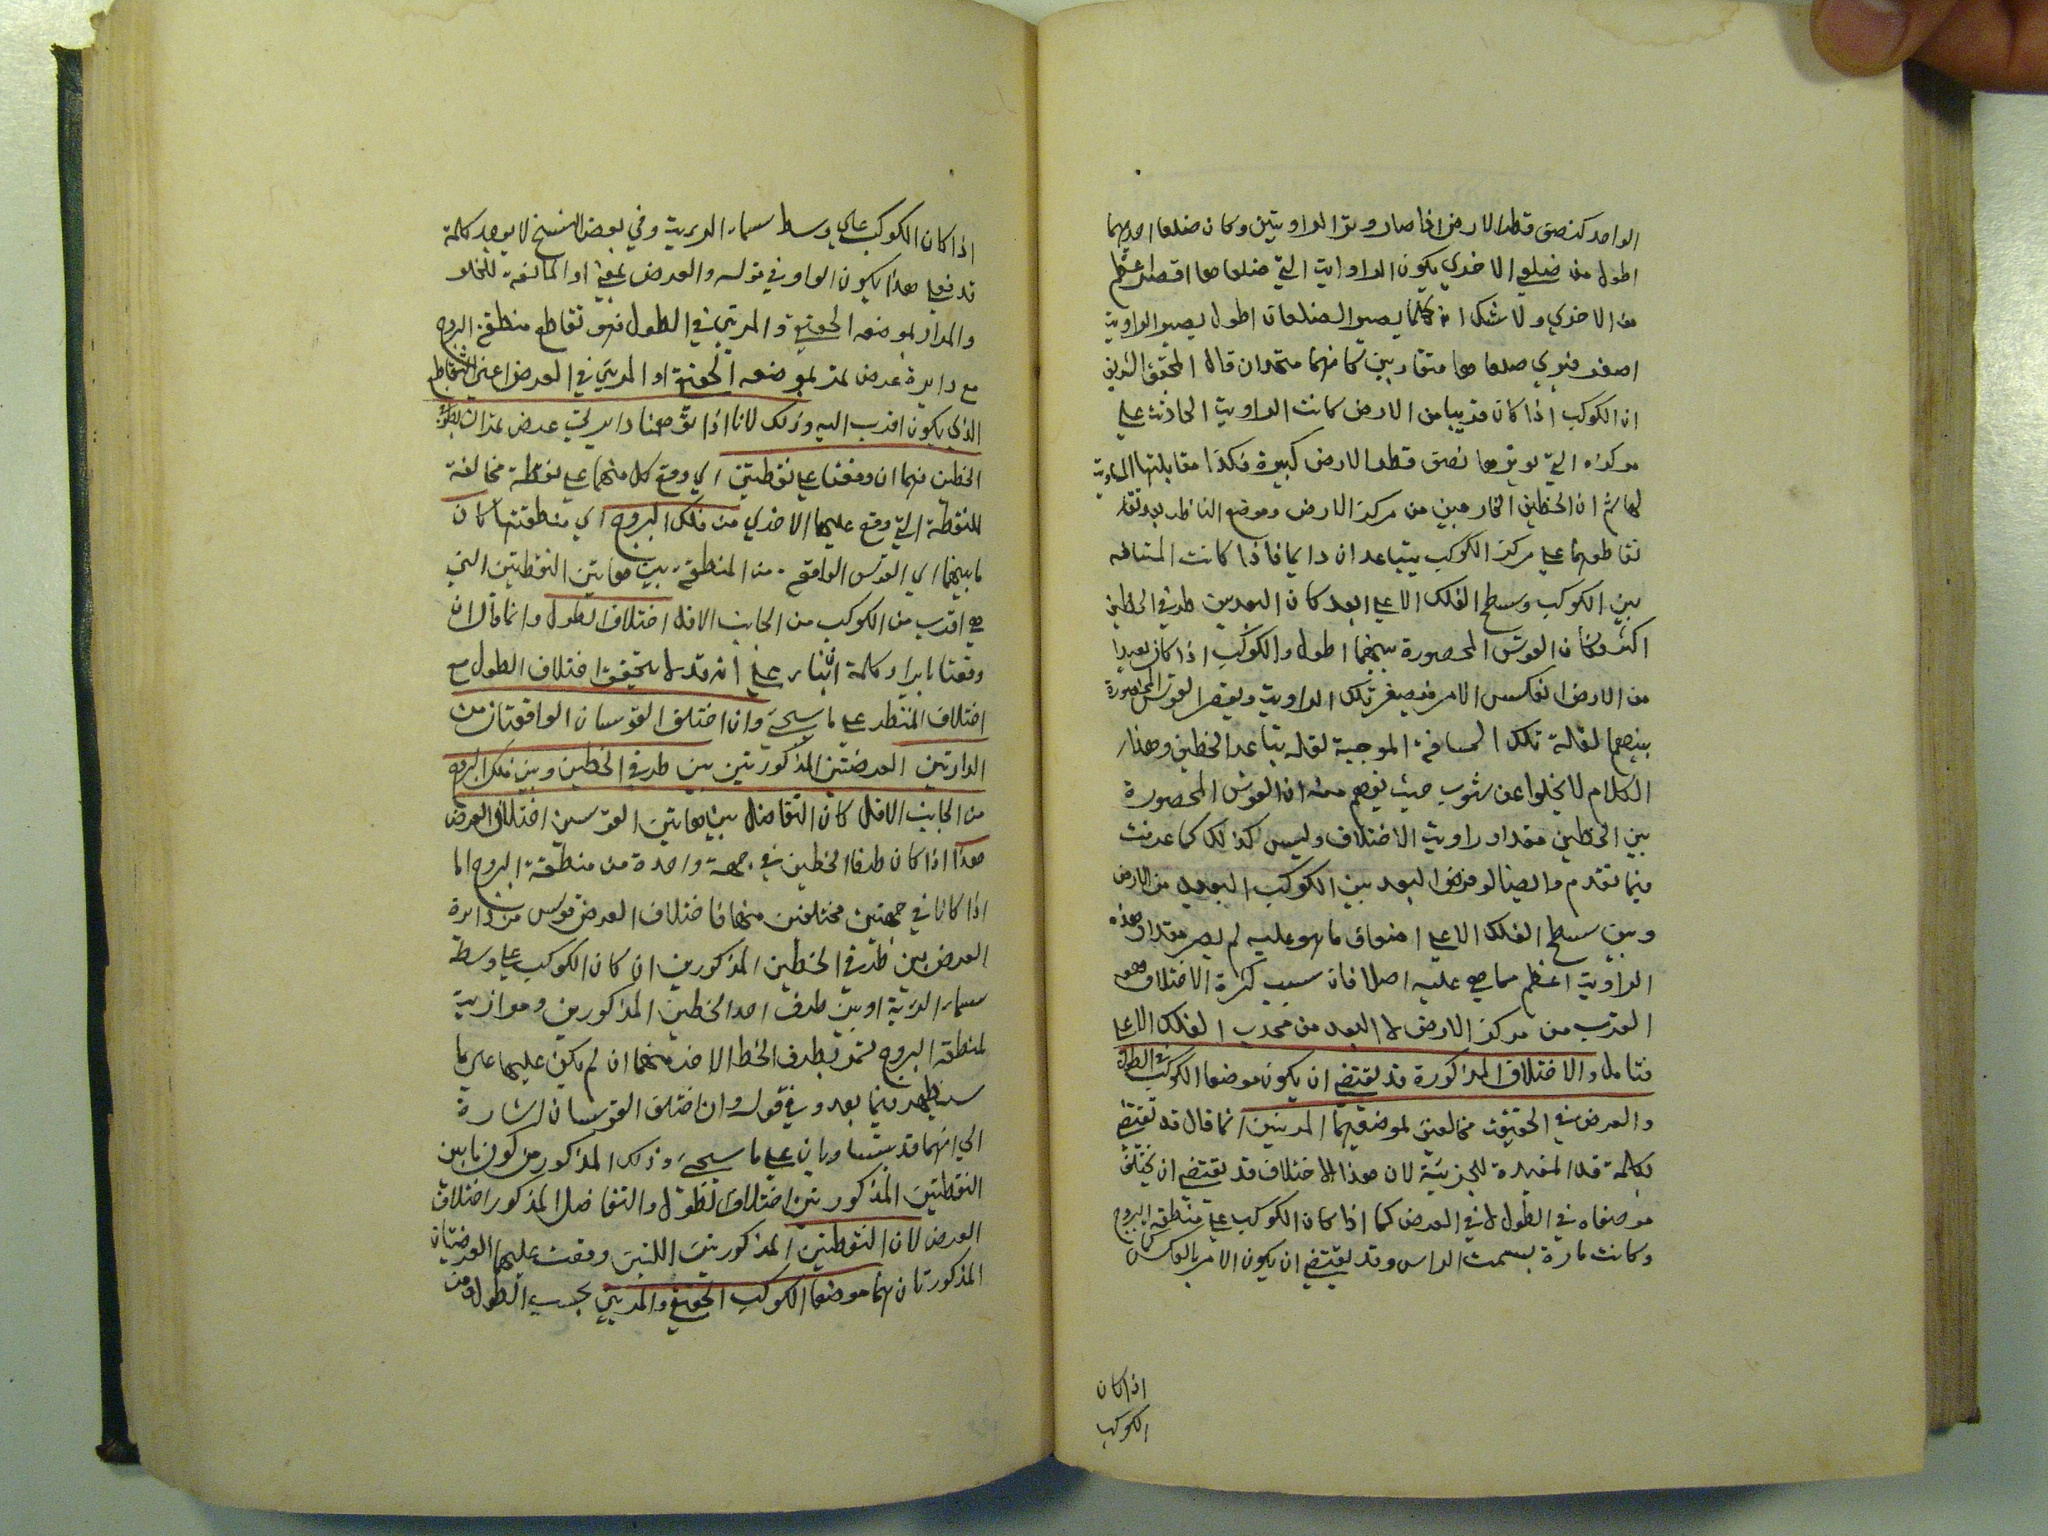 الواحد كنصف قطر الارض اذا صار وتر الزاويتين وكان ضلعا احديهما
اطول من ضلعي الاخرى يكون الزاوية التي ضلعاها اقصر اعظم
من الاخرى ولا شك انه كلما يصير الضلعان اطول يصير الزاوية
اصغر فنرى ضلعاها متقاربين كانهما متحدان قال المحقق الشريف
ان الكوكب اذا كان قريبا من الارض كانت الزاوية الحادثة على
مركزه التي يوترها نصف قطر الارض كبيرة فكذا مقابلتها المساوية
لها ثم ان الخطين الخارجين من مركز الارض وموضع الناظر بعد
تقاطعهما على مركز الكوكب يتباعدان دايما فاذا كانت المسافه
بين الكوكب وسطح الفلك الاعلى ابعد كان البعد بين طرفي الخطين
اكثر وكان القوس المحصورة بينهما اطول والكوكب اذا كان بعيدا
من الارض انعكس الامر فيصغر تلك الزاوية ويقصر القوس المحصورة
بينهما لقلة تلك المسافة الموجبة لقلة تباعد الخطين وهذا
الكلام لا يخلوا عن شوب حيث يفهم منه ان القوس المحصورة
بين الخطين مقدار زاوية الاختلاف وليس كذلك كما عرفت
فيما تقدم وايضا لو فرض البعد بين الكوكب البعيد من الارض
وبين سطح الفلك الاعلى اضعاف ما هو عليه لم يصر مقدار هذه
الزاوية اعظم مما هي عليه اصلا فان سبب كثرة الاختلاف هو
القرب من مركز الارض لا البعد من محدب الفلك الاعلى
فتامل والاختلاف المذكورة قد يقتضي ان يكون موضعا الكوكب في الطول
والعرض في الحقيقة مخالفين لموضعيهما المرئيين انما قال قد تقتضي
بكلمة قد المفيدة للجزئية لان هذا الاختلاف قد يقتضي ان يختلف
موضعاه في الطول لا في العرض كما اذا كان الكوكب على منطقة البروج
وكانت مارة بسمت الراس وقد يقتضي ان يكون الامر بالعكس كما
اذا كان
الكوكب
اذا كان الكوكب على وسط سماء الروية وفي بعض النسخ لا يوجد كلمة
قد فعلى هذا يكون الواو في قوله والعرض بمعنى او المانعة للخلو
والمراد بموضعه الحقيقي والمرئي في الطول هو تقاطع منطقة البروج
مع دايرة عرض تمر بموضعه الحقيقي او المرئي في العرض اعني التقاطع
الذي يكون اقرب اليه وذلك لانا اذا توهمنا دايرتي عرض تمران بطرفي
الخطين فهما ان وقعتا على نقطتين اي وقع كل منهما على نقطة مخالفة
للنقطة التي وقع عليها الاخرى من فلك البروج اي منطقتها كان
ما بينهما اي القوس الواقع من المنطقة بين هاتين النقطتين التي
هي اقرب من الكوكب من الجانب الاقل اختلاف الطول وانما قال ان
وقعتا بايراد كلمة ان بناء على انه قد لا يتحقق اختلاف الطول مع
اختلاف المنظر على ما سيجيء وان اختلف القوسان الواقعتان من
الدايرتين العرضيتين المذكورتين بين طرفي الخطين وبين فلك البروج
من الجانب الاقل كان التفاضل بين هاتين القوسين اختلاف العرض
هذا اذا كان طرفا الخطين في جهة واحدة من منطقة البروج اما
اذا كانا في جهتين مختلفتين منها فاختلاف العرض قوس من دايرة
العرض بين طرفي الخطين المذكورين ان كان الكوكب على وسط
سماء الروية او بين طرف احد الخطين المذكورين وموازية
لمنطقة البروج تمر بطرف الخط الاخر منهما ان لم يكن عليها على ما
سيظهر فيما بعد وفي قوله وان اختلف القوسان اشارة
الى انهما قد يتساويان على ما سيجيء وذلك المذكور من كون ما بين
النقطتين المذكورتين اختلاف الطول والتفاضل المذكور اختلاف
العرض لان النقطتين المذكورتين اللتين وقعت عليهما العرضيتان
المذكورتان هما موضعا الكوكب الحقيقي والمرئي بحسب الطول من